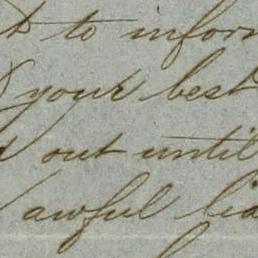 to inform
your best
out until
awful